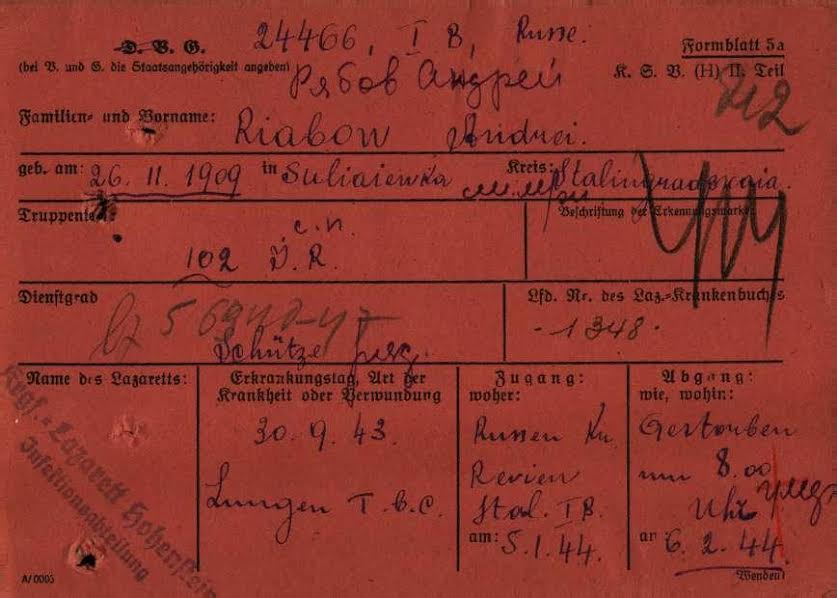 D. V. G. 24466, I B, Russe.
Formblatt 5a
(bei V. und G. die Staatsangehörigkeit angeben)
Рябов Андрей
K. S. V. (H) II. Teil
Familien- und Vorname:
Riabow Andrei.
geb. am: 26. 11. 1909 in Suliaiewka Kreis: Stalingradskaia.
Truppenteil
Beschriftung der Erkennungsmarke
с.п.
102 J. R.
Dienstgrad
Lfd. Nr. des Laz.-Krankenbuches
- 1348 -
Schütze
Name des Lazaretts:
Erkrankungstag, Art der
Krankheit oder Verwundung
Zugang:
woher:
Abgang:
wie, wohin:
Krgf.-Lazarett Hohenstein
Infektionsabteilung
30. 9. 43.
Lungen T. b. C.
Russen Kr.
Revier
Stal. I B.
am: 5. 1. 44.
Gestorben
um 8.00
Uhr
am 6. 2. 44.
A/0005
Wenden!